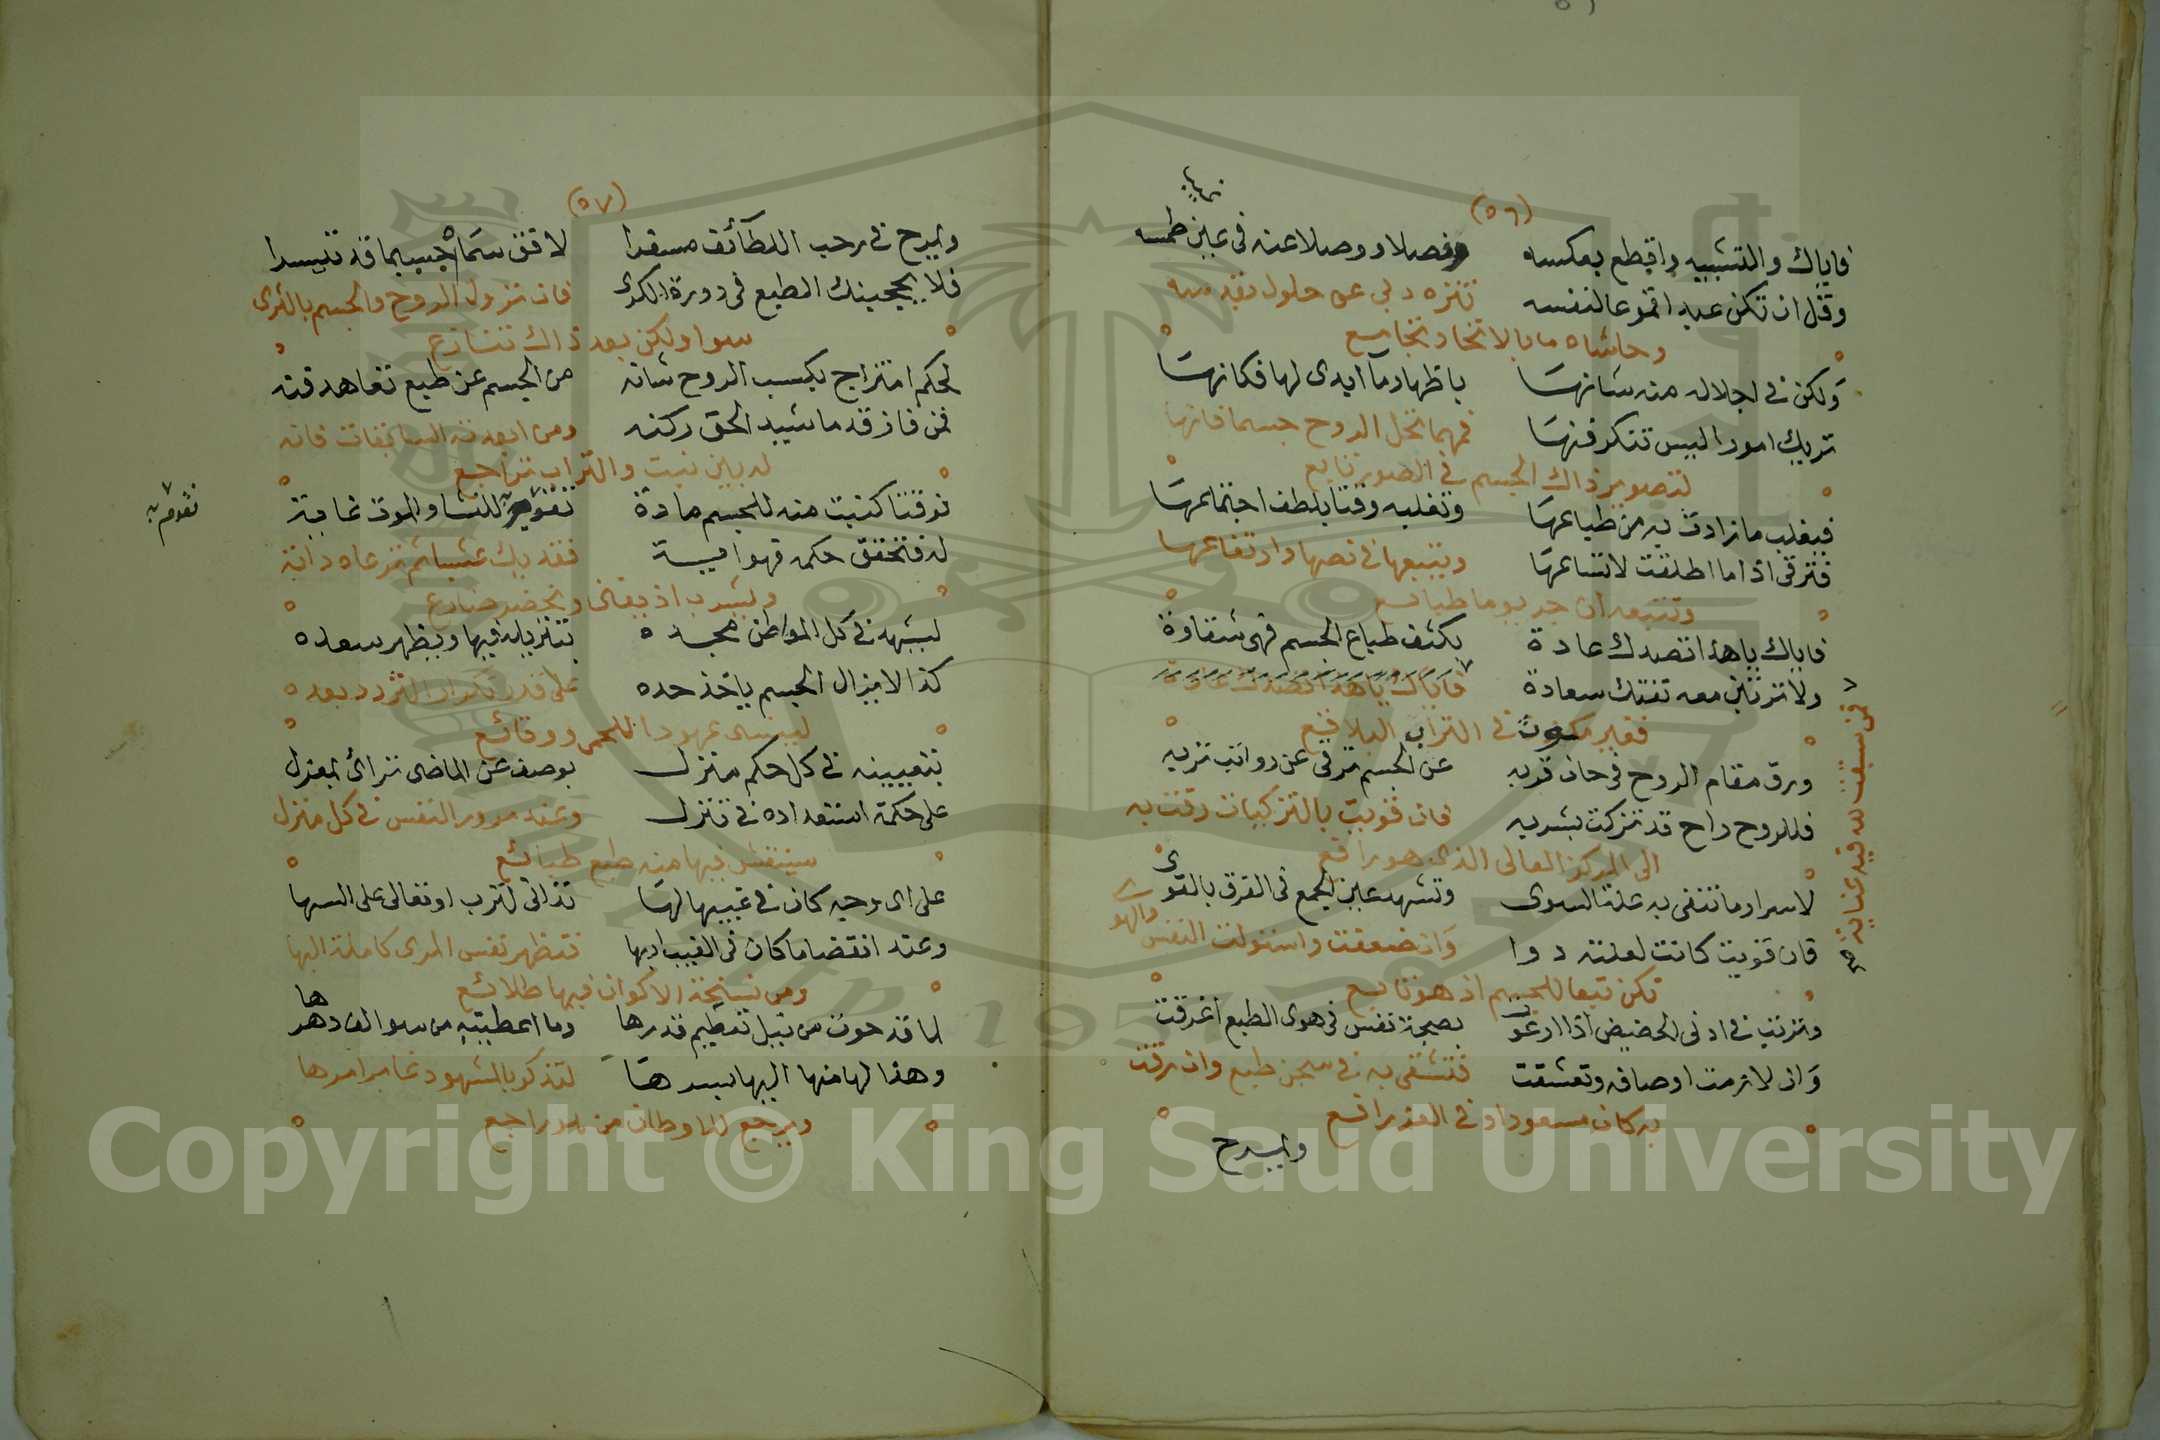 (٥٦)
فاياك والتشبيه واقطع بعكسه
وفصلا ووصلا عنه في عين طمسه
وقل ان تكن عبدا قموعا لنفسه
تنزه ربي عن حلول بقدسه
وحاشاه ما بالاتحاد تجامع
ولكن في اجلاله منه شانها
باظهار ما ابدى لها فكانها
تريك امورا ليس تنكر فنها
فمهما تخل الروح جسما فانها
لتصوير ذاك الجسم في الصور تابع
فيغلب ما زادت به من طباعها
وتغلبه وقتا بلطف اجتماعها
فترقى اذا ما اطلقت لاتساعها
ويتبعها في نصها وارتفاعها
وتتبعه ان جد يوما طبائع
فاياك يا هذا تصدك عادة
بكثف طباع الجسم فهي شقاوة
ولا ترثين معه تفتك سعادة
فاياك يا هذا تصدك عادة
فمن سبقت لله فيه عناية صح
فغير مكوث في التراب البلاقع
ورق مقام الروح في حان قربه
عن الجسم ترقى عن رواتب تربه
فللروح راح قد تزكت بشربه
فان قويت بالتزكيات رقت به
الى المركز العالي الذي هو رافع
لاسرار ما تنفي به علة السوى
وتشهد عين الجمع في الفرق بالقوى
فان قويت كانت لعلته دوا
وان ضعفت واستولت النفس والهوى
تكن تبعا للجسم اذ هو تابع
وترتب في ادنى الحضيض اذا ارعوت
بصحبة نفس في هوى الطبع اغرقت
وان لازمت اوصافه وتعشقت
فتشقى به في سجن طبع وان رقت
به كان مسعودا وفي العز رافع
ويسرح
(٥٧)
ويمرح في رحب اللطائف مسفرا
لافق سما جسم بما قد تيسرا
فلا يحجبنك الطبع في دورة الكرى
فان نزول الروح والجسم بالثرى
سوا ولكن بعد ذاك تنازع
لحكم امتزاج يكسب الروح شانه
من الجسم عن طبع تعاهد فنه
فمن فاز قد ما شيد الحق ركنه
ومن ابعدته السابقات فانه
له بين نبت والتراب تراجع
فوقتا كنبت منه للجسم مادة
تقوم به للنشا والموت غاية
تقوم به
له فتحقق حكمه فهو اية
فقد يك عشبا ثم ترعاه دابة
ويشرب اذ يفنى ويخضر ضارع
لبشهه في كل المواطن مجده
بتنزيله فيها ويظهر سعده
كذا لا يزال الجسم ياخذ حده
على قدر تكرار التردد بعده
لينسى عهودا للحمى ووقائع
بتعيينه في كل حكم منزل
بوصف عن الماضي تراى بمعزل
على حكمة استعداده في تنزل
وعند مرور النفس في كل منزل
سينتقش فيها منه طبع طبائع
على اي وجه كان في غيبها لها
تداني لترب او تعالى على السها
وعند انقضا ما كان في الغيب ادبها
فتظهر نفس المرء كاملة البها
ومن نسخة الاكوان فيها طلائع
لما قد حوت من نيل تعظيم قدرها
وما اعطيته من سوالف دهرها
وهذا لها منها اليها بسرها
لتذكر بالمشهود غابر امرها
ويرجع للاوطان من هو راجع
Copyright © King Saud University
1957